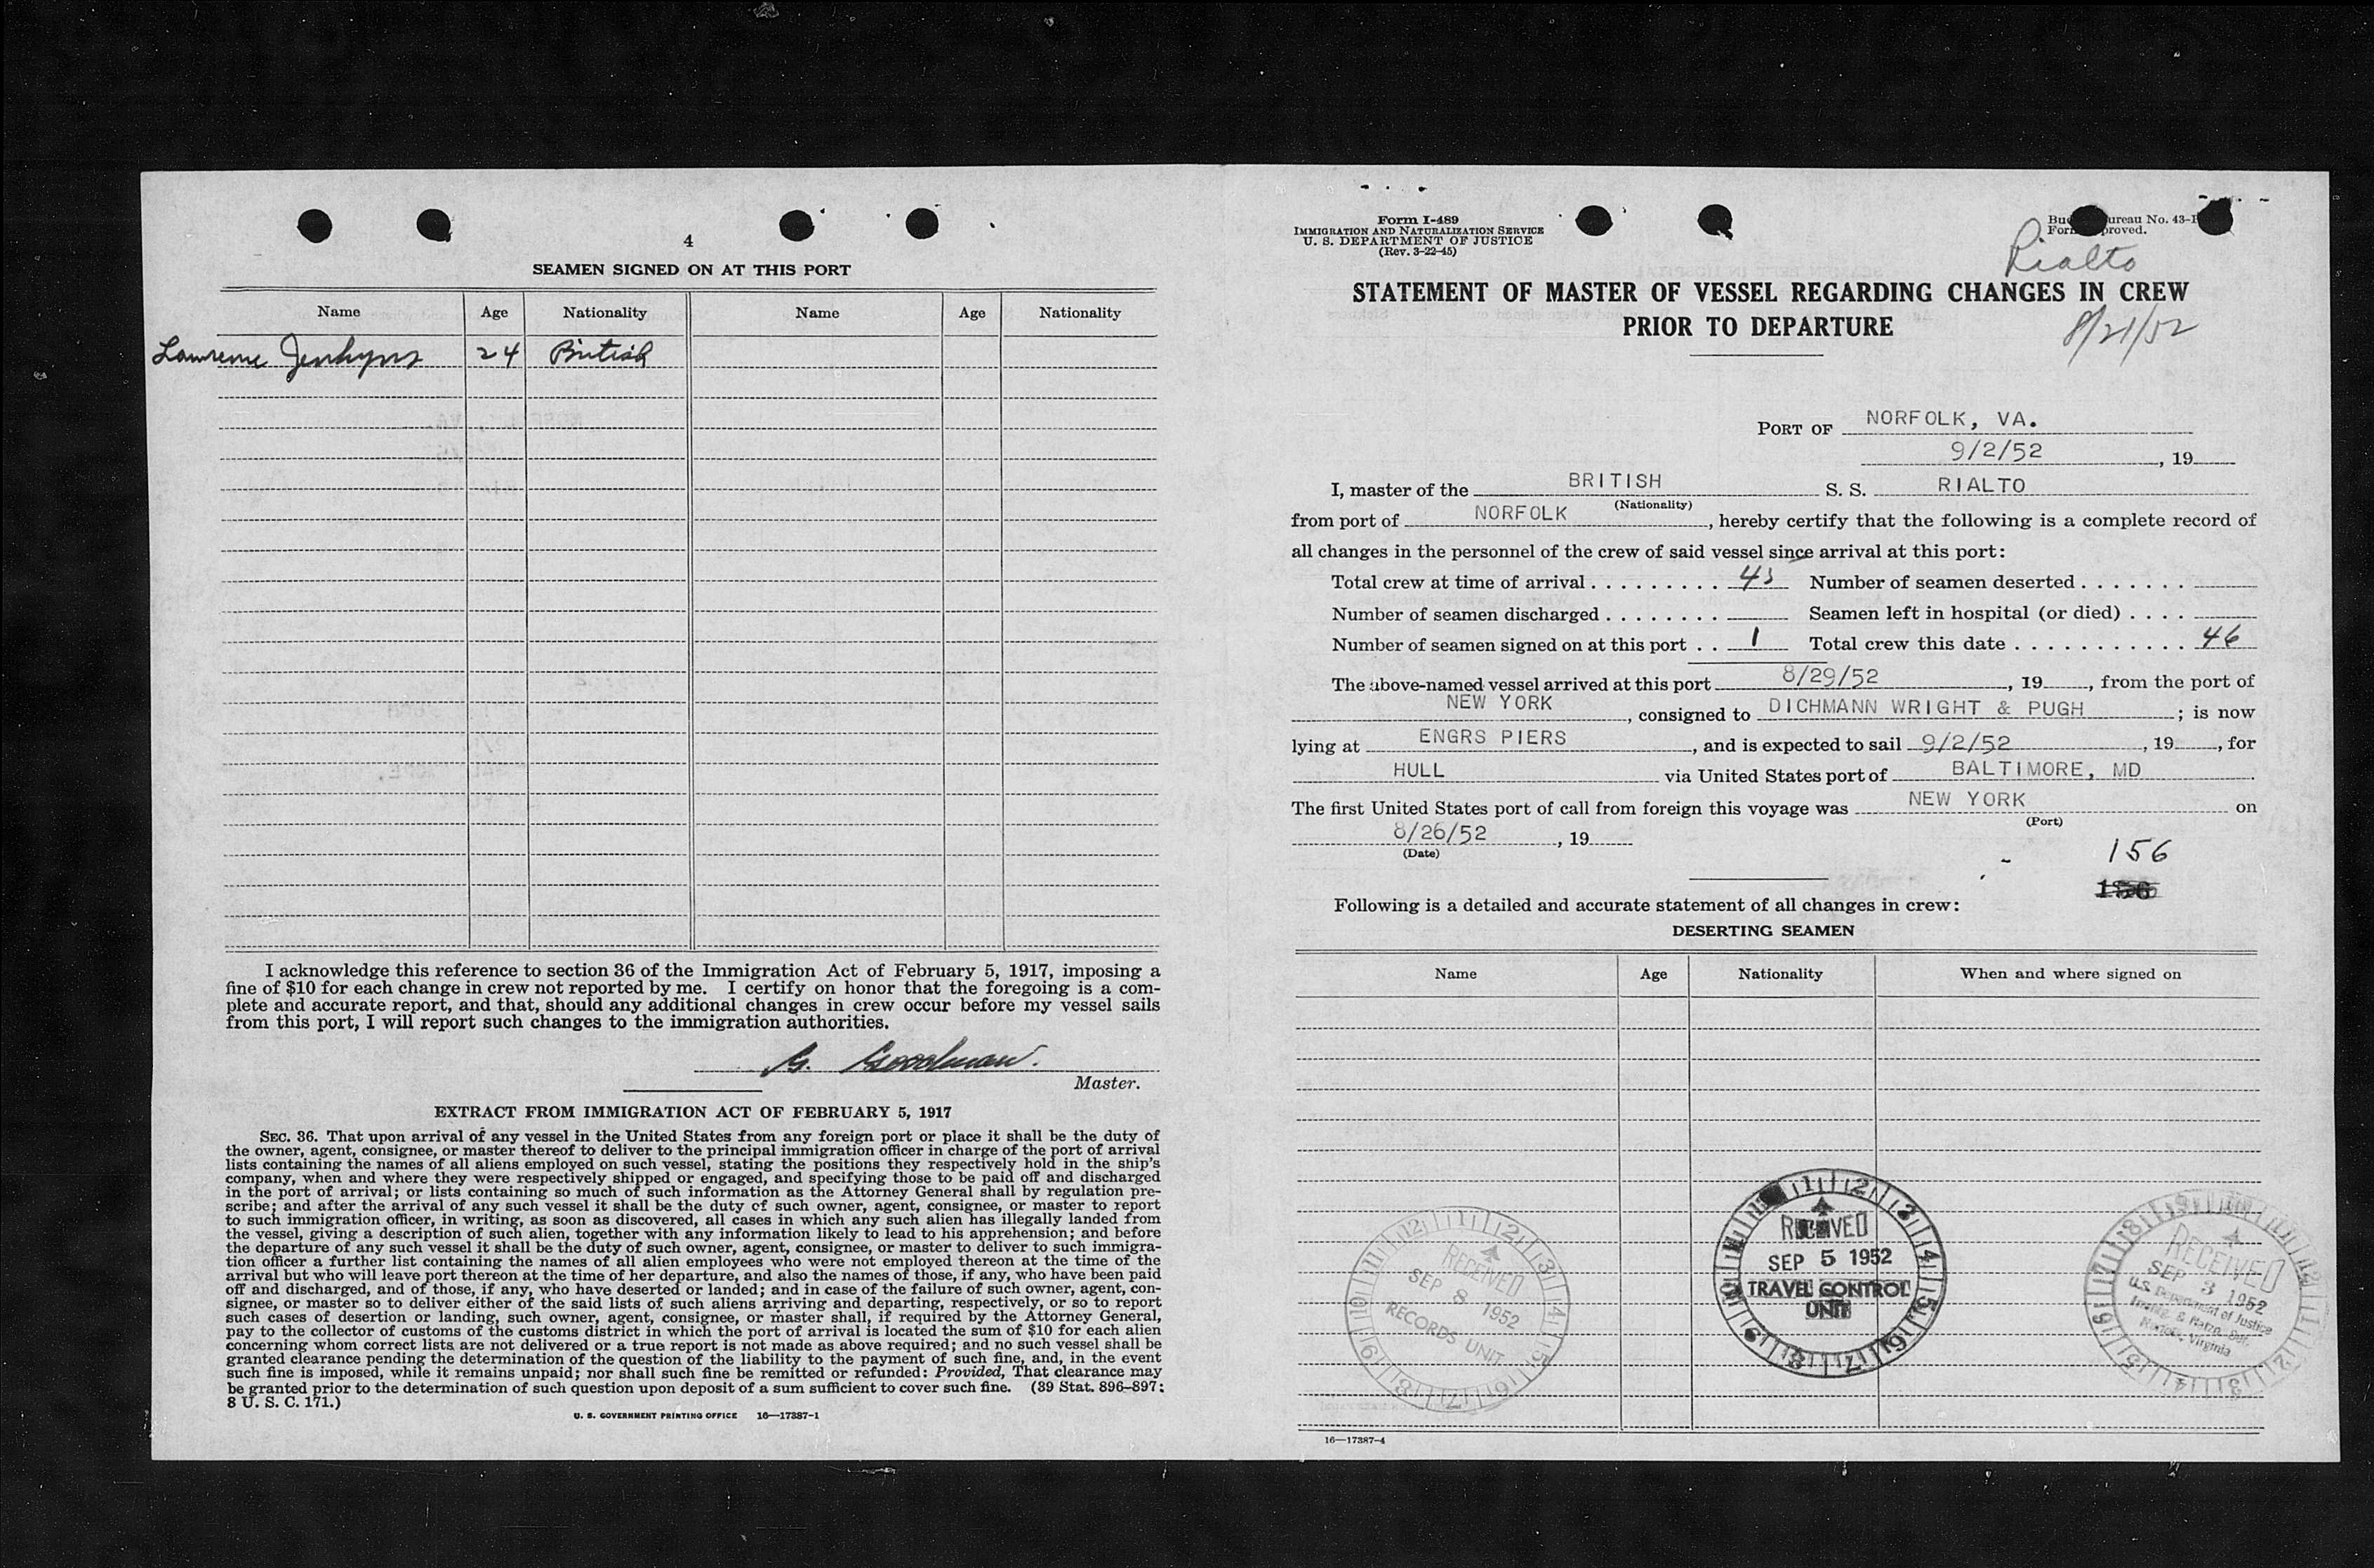 4
SEAMEN SIGNED ON AT THIS PORT
Name Age Nationality Name Age Nationality
Lawrence Jenkyns 24 British
I acknowledge this reference to section 36 of the Immigration Act of February 5, 1917, imposing a
fine of $10 for each change in crew not reported by me. I certify on honor that the foregoing is a com-
plete and accurate report, and that, should any additional changes in crew occur before my vessel sails
from this port, I will report such changes to the immigration authorities.
G. Goodman.
Master.
EXTRACT FROM IMMIGRATION ACT OF FEBRUARY 5, 1917
SEC. 36. That upon arrival of any vessel in the United States from any foreign port or place it shall be the duty of
the owner, agent, consignee, or master thereof to deliver to the principal immigration officer in charge of the port of arrival
lists containing the names of all aliens employed on such vessel, stating the positions they respectively hold in the ship's
company, when and where they were respectively shipped or engaged, and specifying those to be paid off and discharged
in the port of arrival; or lists containing so much of such information as the Attorney General shall by regulation pre-
scribe; and after the arrival of any such vessel it shall be the duty of such owner, agent, consignee, or master to report
to such immigration officer, in writing, as soon as discovered, all cases in which any such alien has illegally landed from
the vessel, giving a description of such alien, together with any information likely to lead to his apprehension; and before
the departure of any such vessel it shall be the duty of such owner, agent, consignee, or master to deliver to such immigra-
tion officer a further list containing the names of all alien employees who were not employed thereon at the time of the
arrival but who will leave port thereon at the time of her departure, and also the names of those, if any, who have been paid
off and discharged, and of those, if any, who have deserted or landed; and in case of the failure of such owner, agent, con-
signee, or master so to deliver either of the said lists of such aliens arriving and departing, respectively, or so to report
such cases of desertion or landing, such owner, agent, consignee, or master shall, if required by the Attorney General,
pay to the collector of customs of the customs district in which the port of arrival is located the sum of $10 for each alien
concerning whom correct lists are not delivered or a true report is not made as above required; and no such vessel shall be
granted clearance pending the determination of the question of the liability to the payment of such fine, and, in the event
such fine is imposed, while it remains unpaid; nor shall such fine be remitted or refunded: Provided, That clearance may
be granted prior to the determination of such question upon deposit of a sum sufficient to cover such fine. (39 Stat. 896–897;
8 U. S. C. 171.)
U. S. GOVERNMENT PRINTING OFFICE 16—17387-1
Form I-489
IMMIGRATION AND NATURALIZATION SERVICE
U. S. DEPARTMENT OF JUSTICE
(Rev. 3-22-45)
No. 43-
Rialto
STATEMENT OF MASTER OF VESSEL REGARDING CHANGES IN CREW
PRIOR TO DEPARTURE
8/21/52
PORT OF NORFOLK, VA.
9/2/52, 19
I, master of the BRITISH S. S. RIALTO
(Nationality)
from port of NORFOLK, hereby certify that the following is a complete record of
all changes in the personnel of the crew of said vessel since arrival at this port:
Total crew at time of arrival . . . . . . . . . 45 Number of seamen deserted . . . . . . .
Number of seamen discharged . . . . . . . . Seamen left in hospital (or died) . . . .
Number of seamen signed on at this port . . 1 Total crew this date . . . . . . . . . . . 46
The above-named vessel arrived at this port 8/29/52, 19, from the port of
NEW YORK, consigned to DICHMANN WRIGHT & PUGH; is now
lying at ENGRS PIERS, and is expected to sail 9/2/52, 19, for
HULL via United States port of BALTIMORE, MD.
The first United States port of call from foreign this voyage was NEW YORK on
(Port)
8/26/52, 19
(Date)
156
156
Following is a detailed and accurate statement of all changes in crew:
DESERTING SEAMEN
Name Age Nationality When and where signed on
RECEIVED
SEP 8 1952
RECORDS UNIT
RECEIVED
SEP 5 1952
TRAVEL CONTROL
UNIT
RECEIVED
SEP 3 1952
U.S. Department of Justice
Virginia
16—17387-4